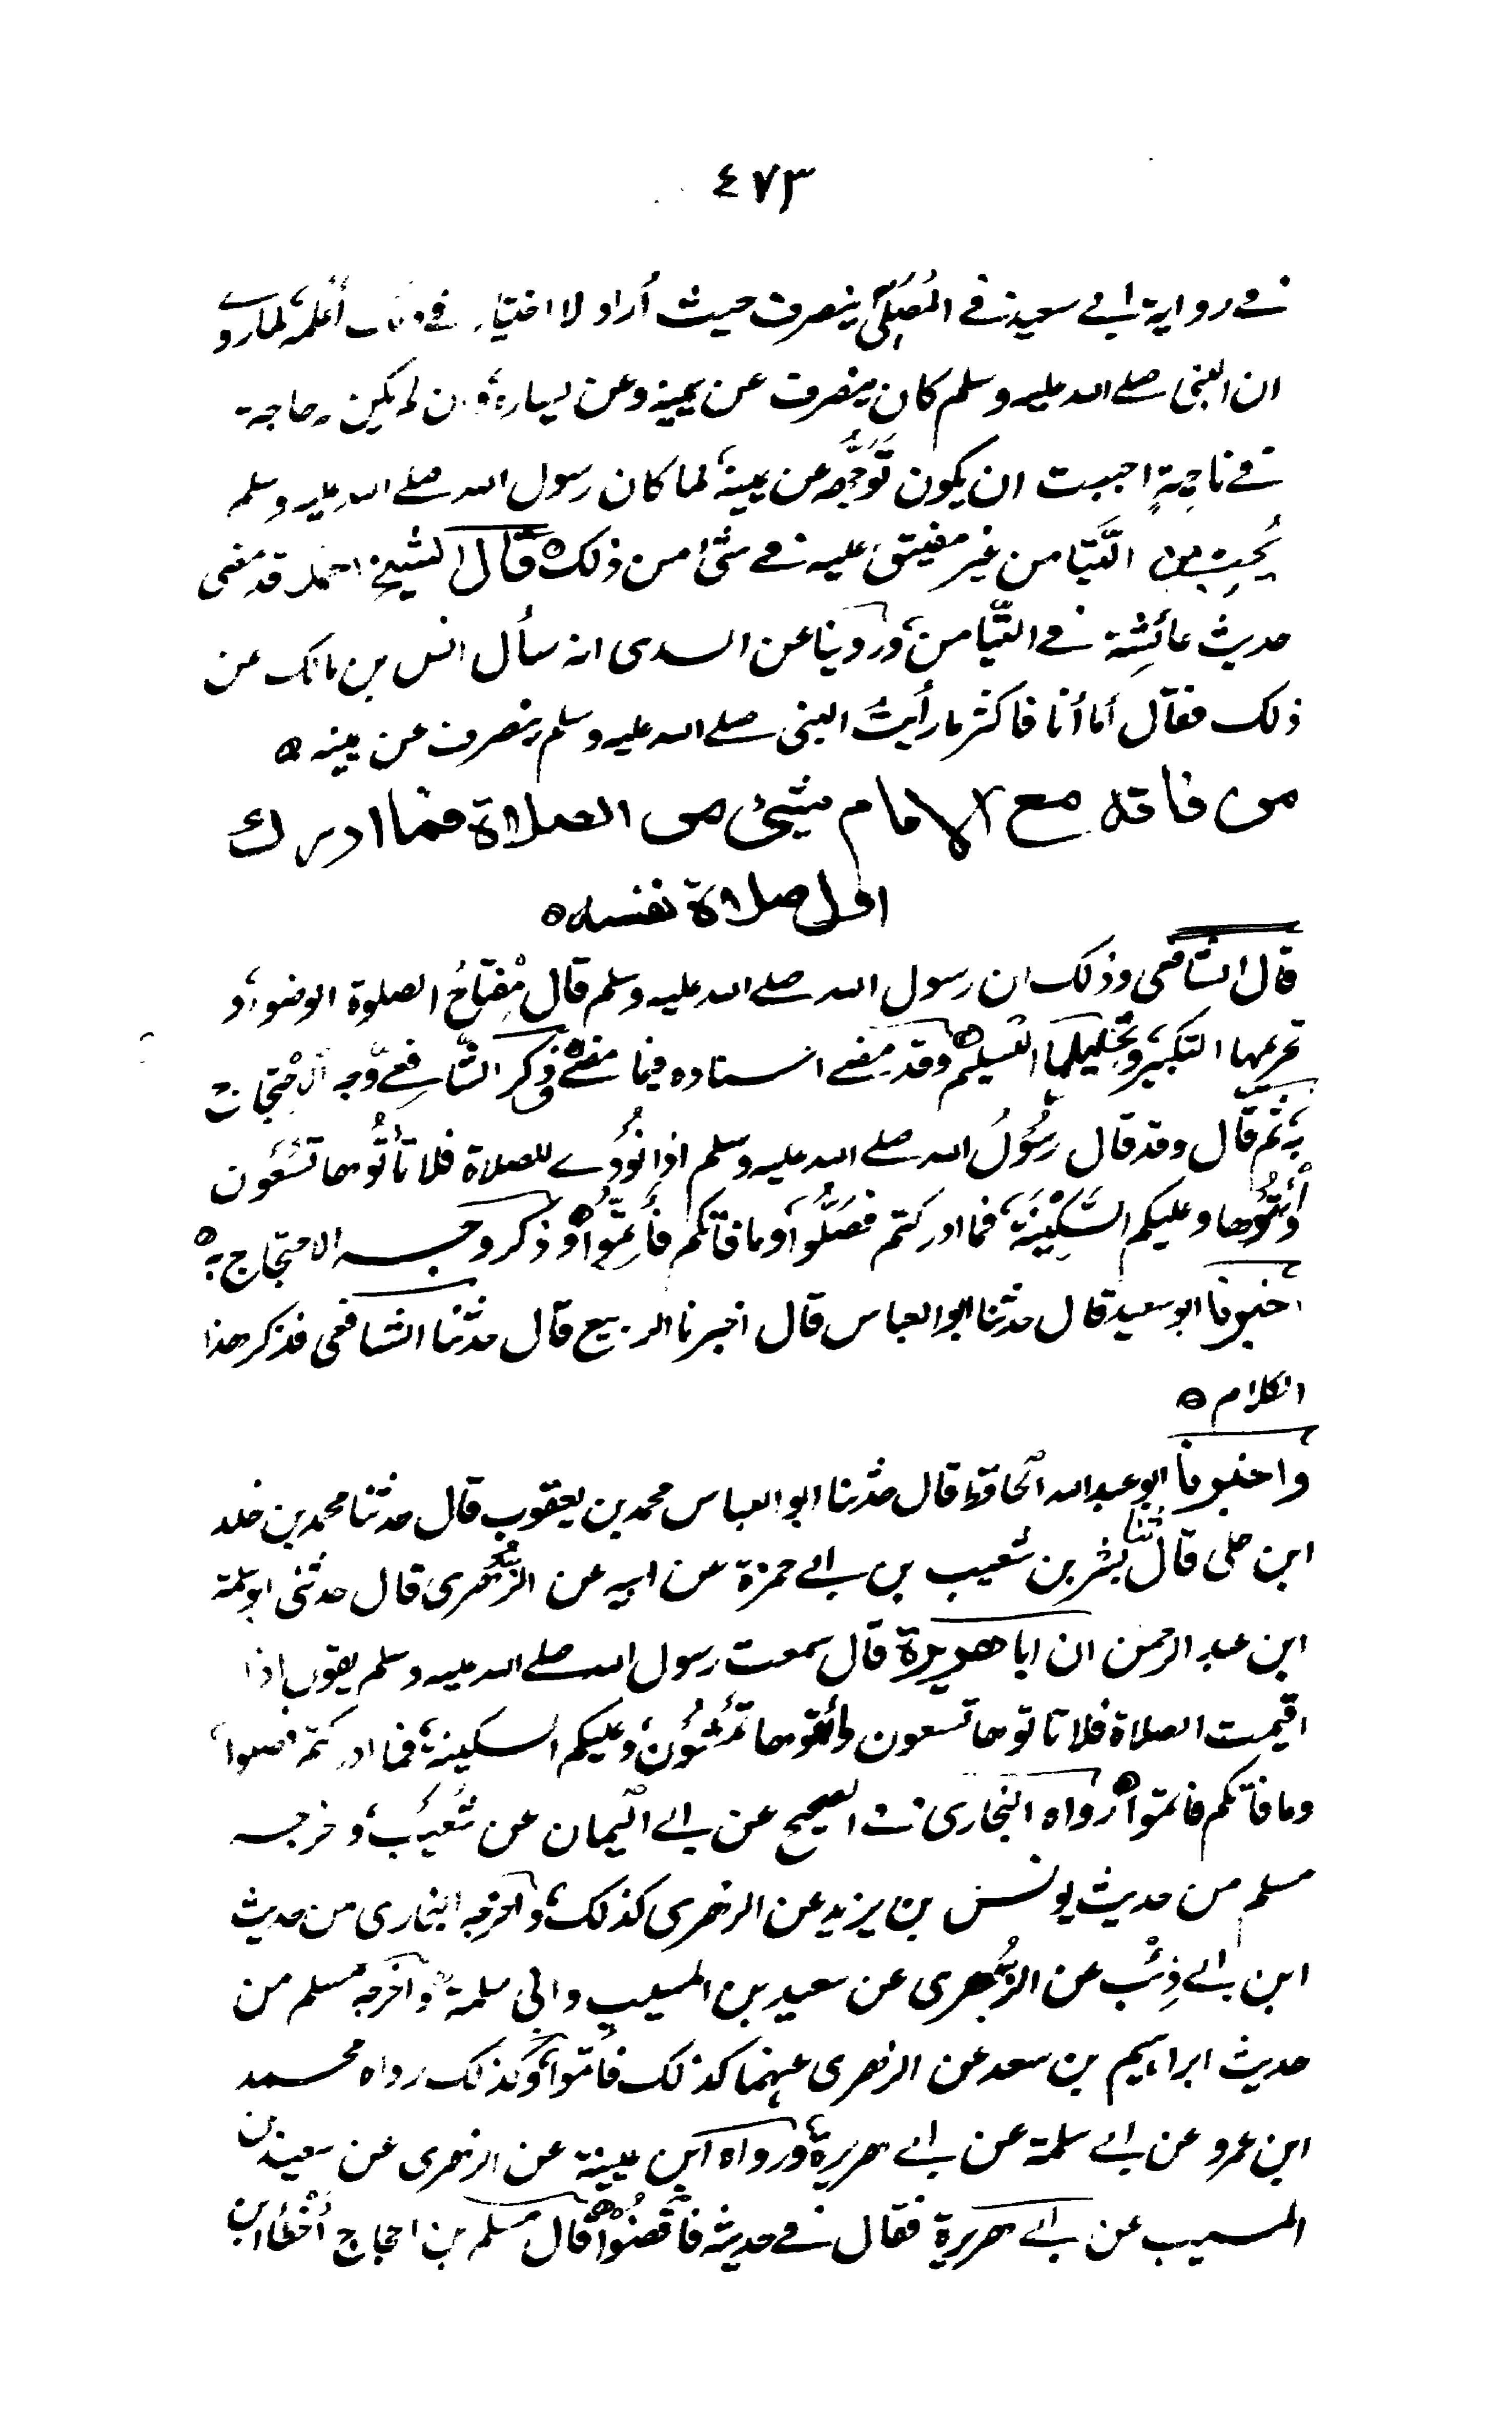 ٤٧٣
في رواية ابي سعيد في المُصَلّي ينصرف حيث أراد لا اختيار في ذلك أعلمه لما روي
ان النبي صلى الله عليه وسلم كان ينصرف عن يمينه وعن يساره، فان لم يكن له حاجة
في ناحِيةٍ احببت ان يكون تَوَجُّهه عن يمينه، لما كان رسول الله صلى الله عليه وسلم
يُحِب من التَّيَامن غير مضيق عليه في شئ من ذلك ه قال الشيخ احمد قد مضى
حديث عائِشة في التَّيامن، وروينا عن السدى انه سأل انس بن مالك عن
ذلك فقال أما أنا فاكثر ما رأيتُ النبي صلى الله عليه وسلم ينصرف عن يمينه ه
من فاته مع الامام شيئ من الصلاة فما ادرك
اول صلاة نفسه ه
قال الشافعي وذلك ان رسول الله صلى الله عليه وسلم قال مِفْتاحُ الصلوة الوضوء، و
تحريمها التكبير، وتَحْلِيلها التسليم ه وقد مضى اسناده فيما مضى وذكر الشَّافِعيّ وجه الاحْتِجاج
به، ثم قال وقد قال رسُولُ الله صلى الله عليه وسلم اذا نُوْدِيَ للصلاة فلا تأتُوها تسْعَون
وأْتُوها وعليكم السَّكِيْنَة، فما ادركتم فصَلُّوا، وما فاتكم فأَتِمُّوا ه وذكر وجه الاحتجاج به ه
اخبرنا ابو سعيد قال حدثنا ابو العباس قال اخبرنا الربيع قال حدثنا الشافعي فذكر هذا
الكلام ه
واخبرنا ابو عبد الله الحافظ قال حدثنا ابو العباس محمد بن يعقوب قال حدثنا محمد بن خلد
ابن خلى قال ثنا بشر بن شعيب بن ابي حمزة عن ابيه عن الزُّهرى قال حدثني ابو سلمة
ابن عبد الرحمن ان ابا هريرة قال سمعت رسول الله صلى الله عليه وسلم يقول اذا
اقيمت الصلاة فلا تاتوها تسعون وأتوها تَمْشُوْن، وعليكم السكينة، فما ادركتم فصلوا،
وما فاتكم فاتموا ه رواه البخارى في الصحيح عن ابي اليمان عن شُعَيْب، وخرجه
مسلم من حديث يونس بن يزيد عن الزهرى كذلك، واخرجه البخارى من حديث
ابن ابي ذِئْب عن الزُّهرى عن سعيد بن المسيب وابي سلمة، واخرجه مسلم من
حديث ابراهيم بن سعد عن الزهرى عنهما كذلك فاتموا، وكذلك رواه محمد
ابن عمرو عن ابي سلمة عن ابي هريرة، ورواه ابن عيينة عن الزهرى عن سعيد بن
المسيب عن ابي هريرة فقال في حديثه فاقْضُوْا ه قال مسلم بن الحجاج أخْطأ ابن